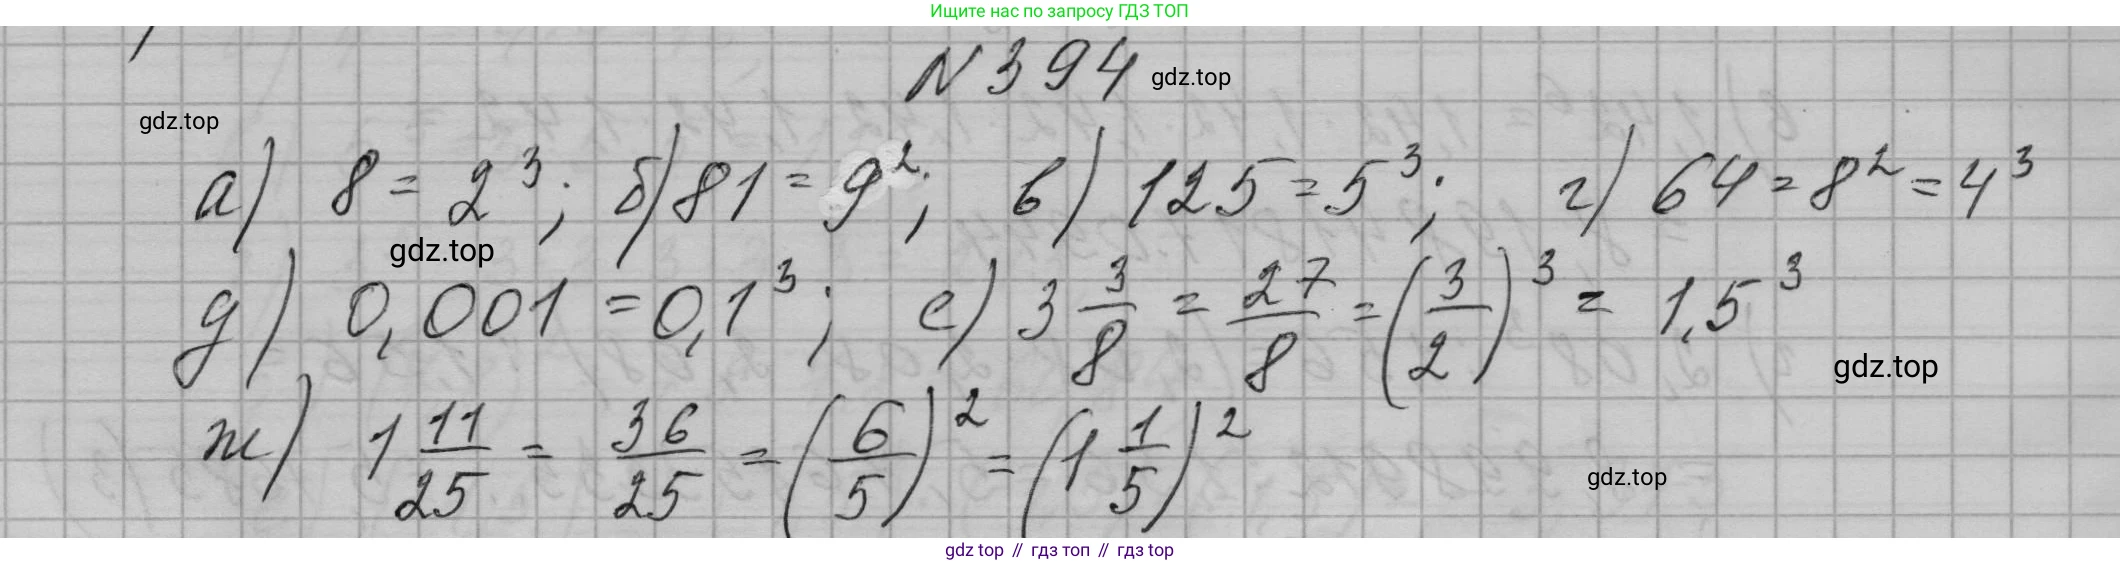 Ищите нас по запросу ГДЗ ТОП
N 394 gdz.top
gdz.top
а) 8 = 2³; б) 81 = 9²; в) 125 = 5³; г) 64 = 8² = 4³
gdz.top
д) 0,001 = 0,1³; е) 3 3/8 = 27/8 = (3/2)³ = 1,5³
gdz.top
ж) 1 11/25 = 36/25 = (6/5)² = (1 1/5)²
gdz.top
gdz top // гдз топ // гдз top